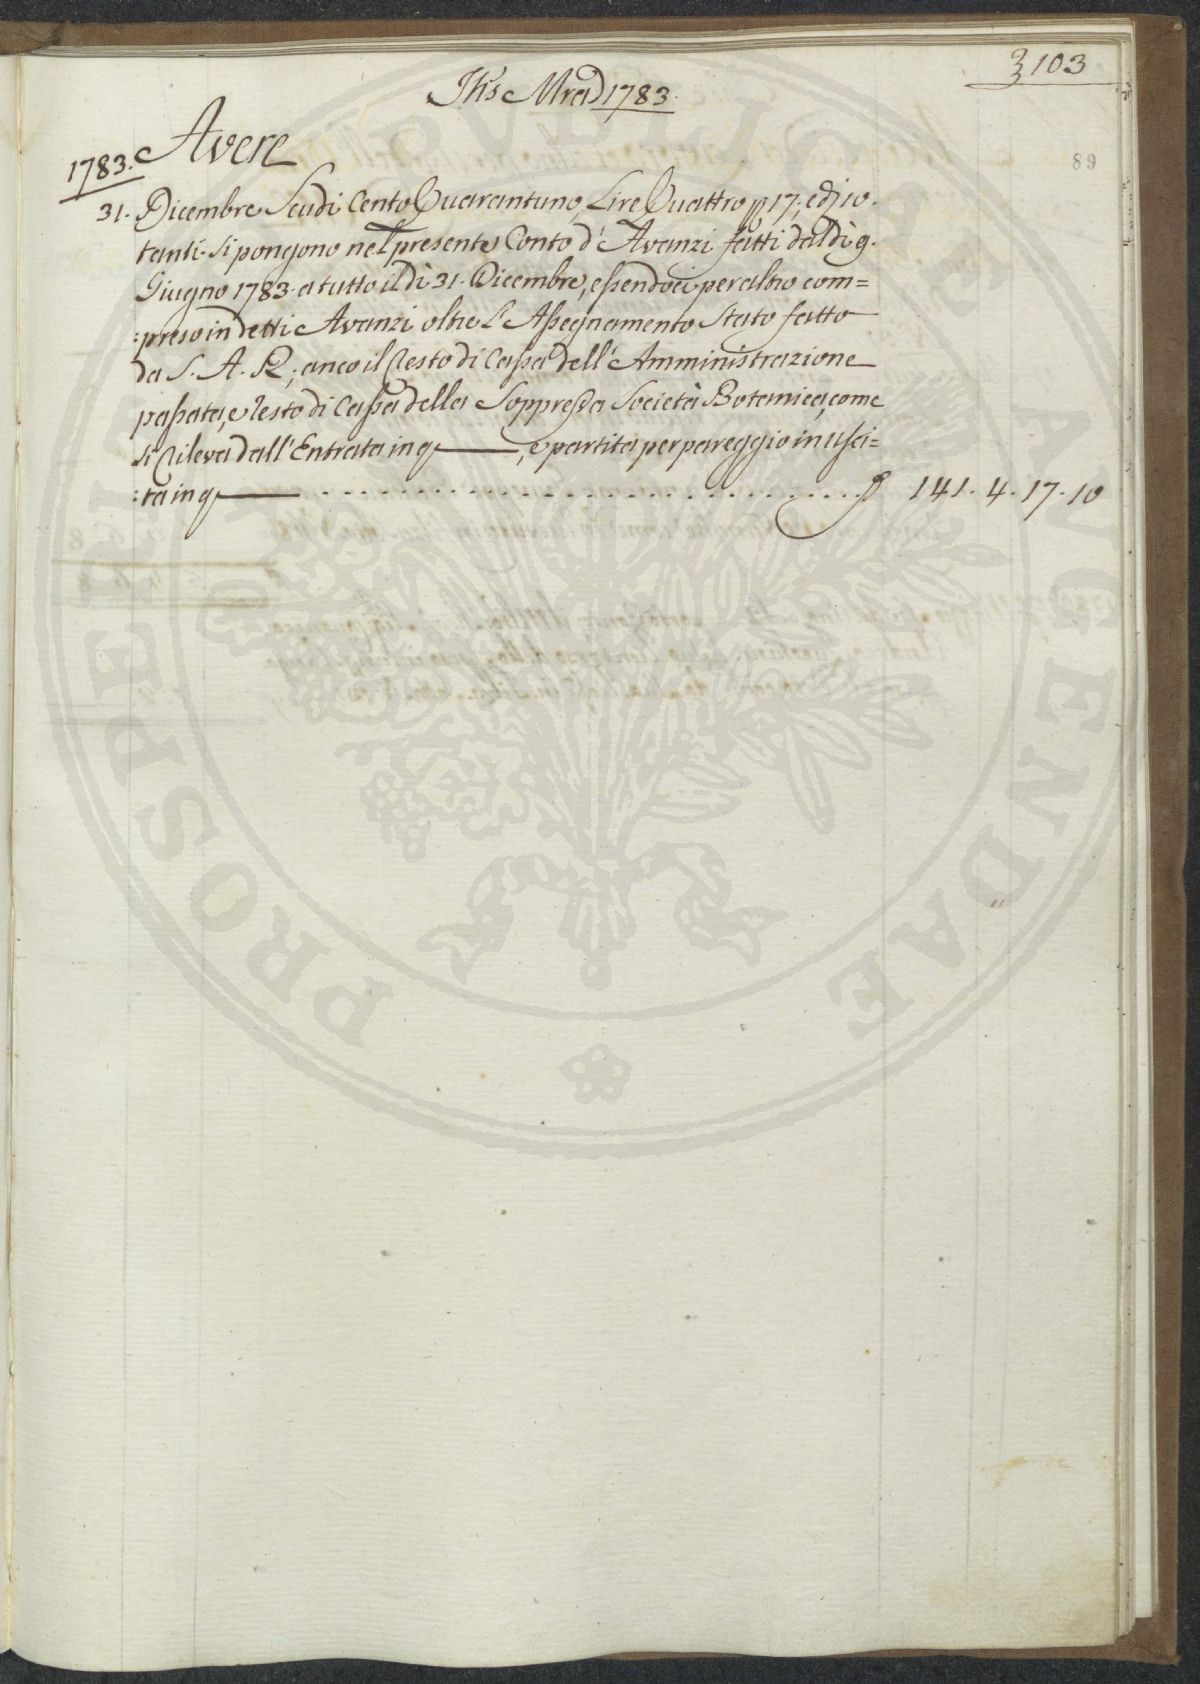 103
Jhs Mrad 1783.
89
1783. Avere
31. Dicembre Scudi Cento Quarantuno, Lire Quattro p 17, e dj 10.
tanti si pongono nel presente Conto d'Avanzi fatti dal dì 9.
Giugno 1783 a tutto il dì 31. Dicembre, essendovi peraltro com=
:preso in detti Avanzi oltre L'Assegnamento stato fatto
da S. A. R., anco il Resto di Cassa dell'Amministrazione
passata, e Resto di Cassa della Soppressa Società Botanica, come
si Rileva dall'Entrata in q ——, e partita per pareggio in Usci=
:ta in q —— . . . . . . . . . . . . . . . . . . . . . . . . . . . . . . 141. 4. 17. 10
PROSPERITATI PVBLICAE AVGENDAE